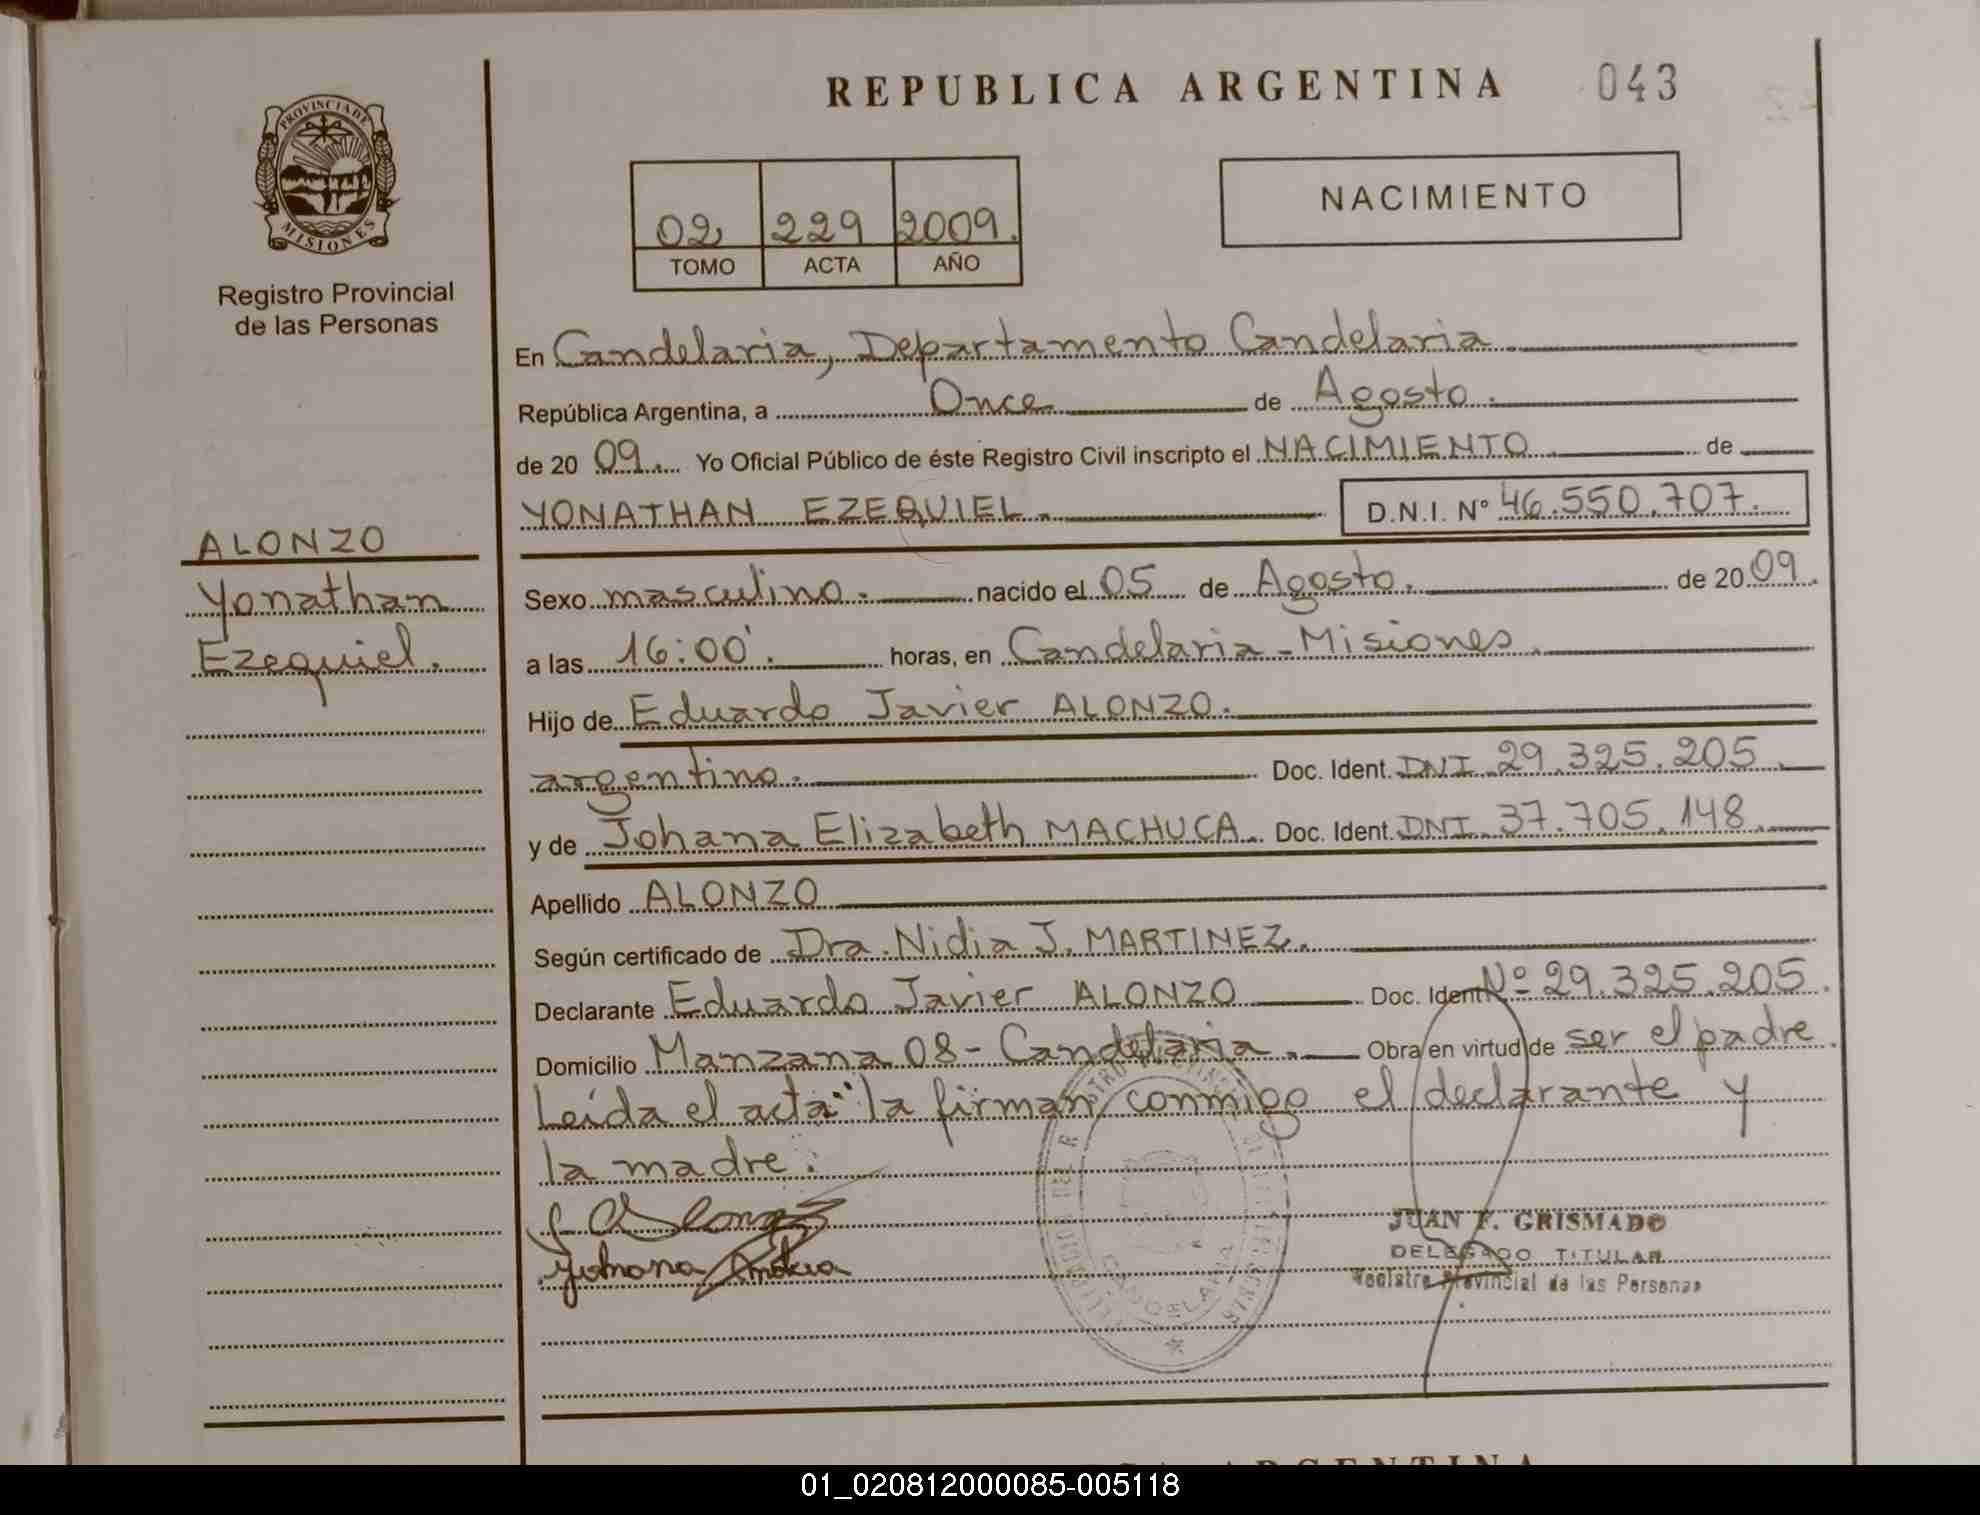 REPUBLICA ARGENTINA 043
PROVINCIA DE
MISIONES
Registro Provincial
de las Personas
02 229 2009.
TOMO ACTA AÑO
NACIMIENTO
En Candelaria, Departamento Candelaria
República Argentina, a Once de Agosto.
de 20 09. Yo Oficial Público de éste Registro Civil inscripto el NACIMIENTO de
YONATHAN EZEQUIEL. D.N.I. Nº 46.550.707.
ALONZO
Yonathan
Ezequiel.
Sexo masculino. nacido el 05 de Agosto. de 20 09.
a las 16:00'. horas, en Candelaria - Misiones.
Hijo de Eduardo Javier ALONZO.
argentino. Doc. Ident. DNI 29.325.205.
y de Johana Elizabeth MACHUCA. Doc. Ident. DNI. 37.705.148.
Apellido ALONZO
Según certificado de Dra. Nidia J. MARTINEZ.
Declarante Eduardo Javier ALONZO Doc. Ident. Nº 29.325.205.
Domicilio Manzana 08 - Candelaria. Obra en virtud de ser el padre.
Leída el acta la firman conmigo el declarante y
la madre.
JUAN F. GRISMADO
DELEGADO TITULAR
Registro Provincial de las Personas
CANDELARIA
ARGENTINA
01_020812000085-005118